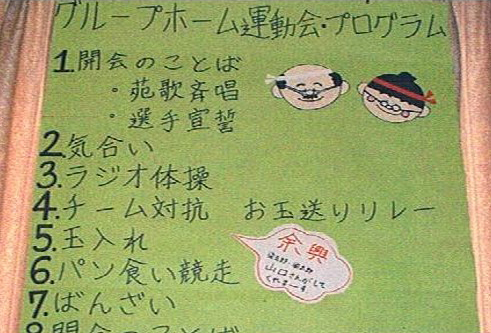 グループホーム運動会・プログラム
1.開会のことば
・苑歌斉唱
・選手宣誓
2.気合い
3.ラジオ体操
4.チーム対抗 お玉送りリレー
5.玉入れ
余興
山口さんがして
くれまーす
6.パン食い競走
7.ばんざい